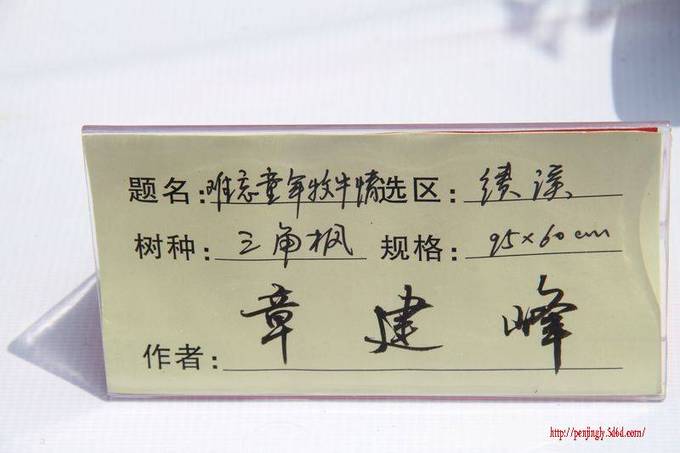 题名:难忘童年牧牛情 选区:绩溪
树种:三角枫 规格:95×60cm
作者:章建峰
http://penjingly.5d6d.com/